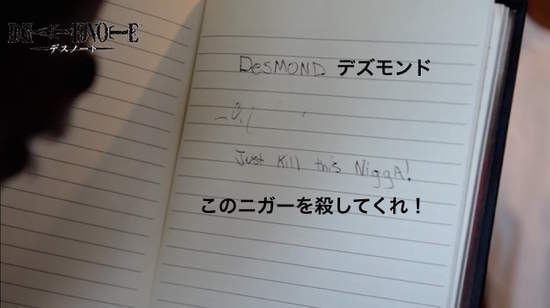 デスノート
DESMOND デズモンド
Just Kill this NiggA!
このニガーを殺してくれ！